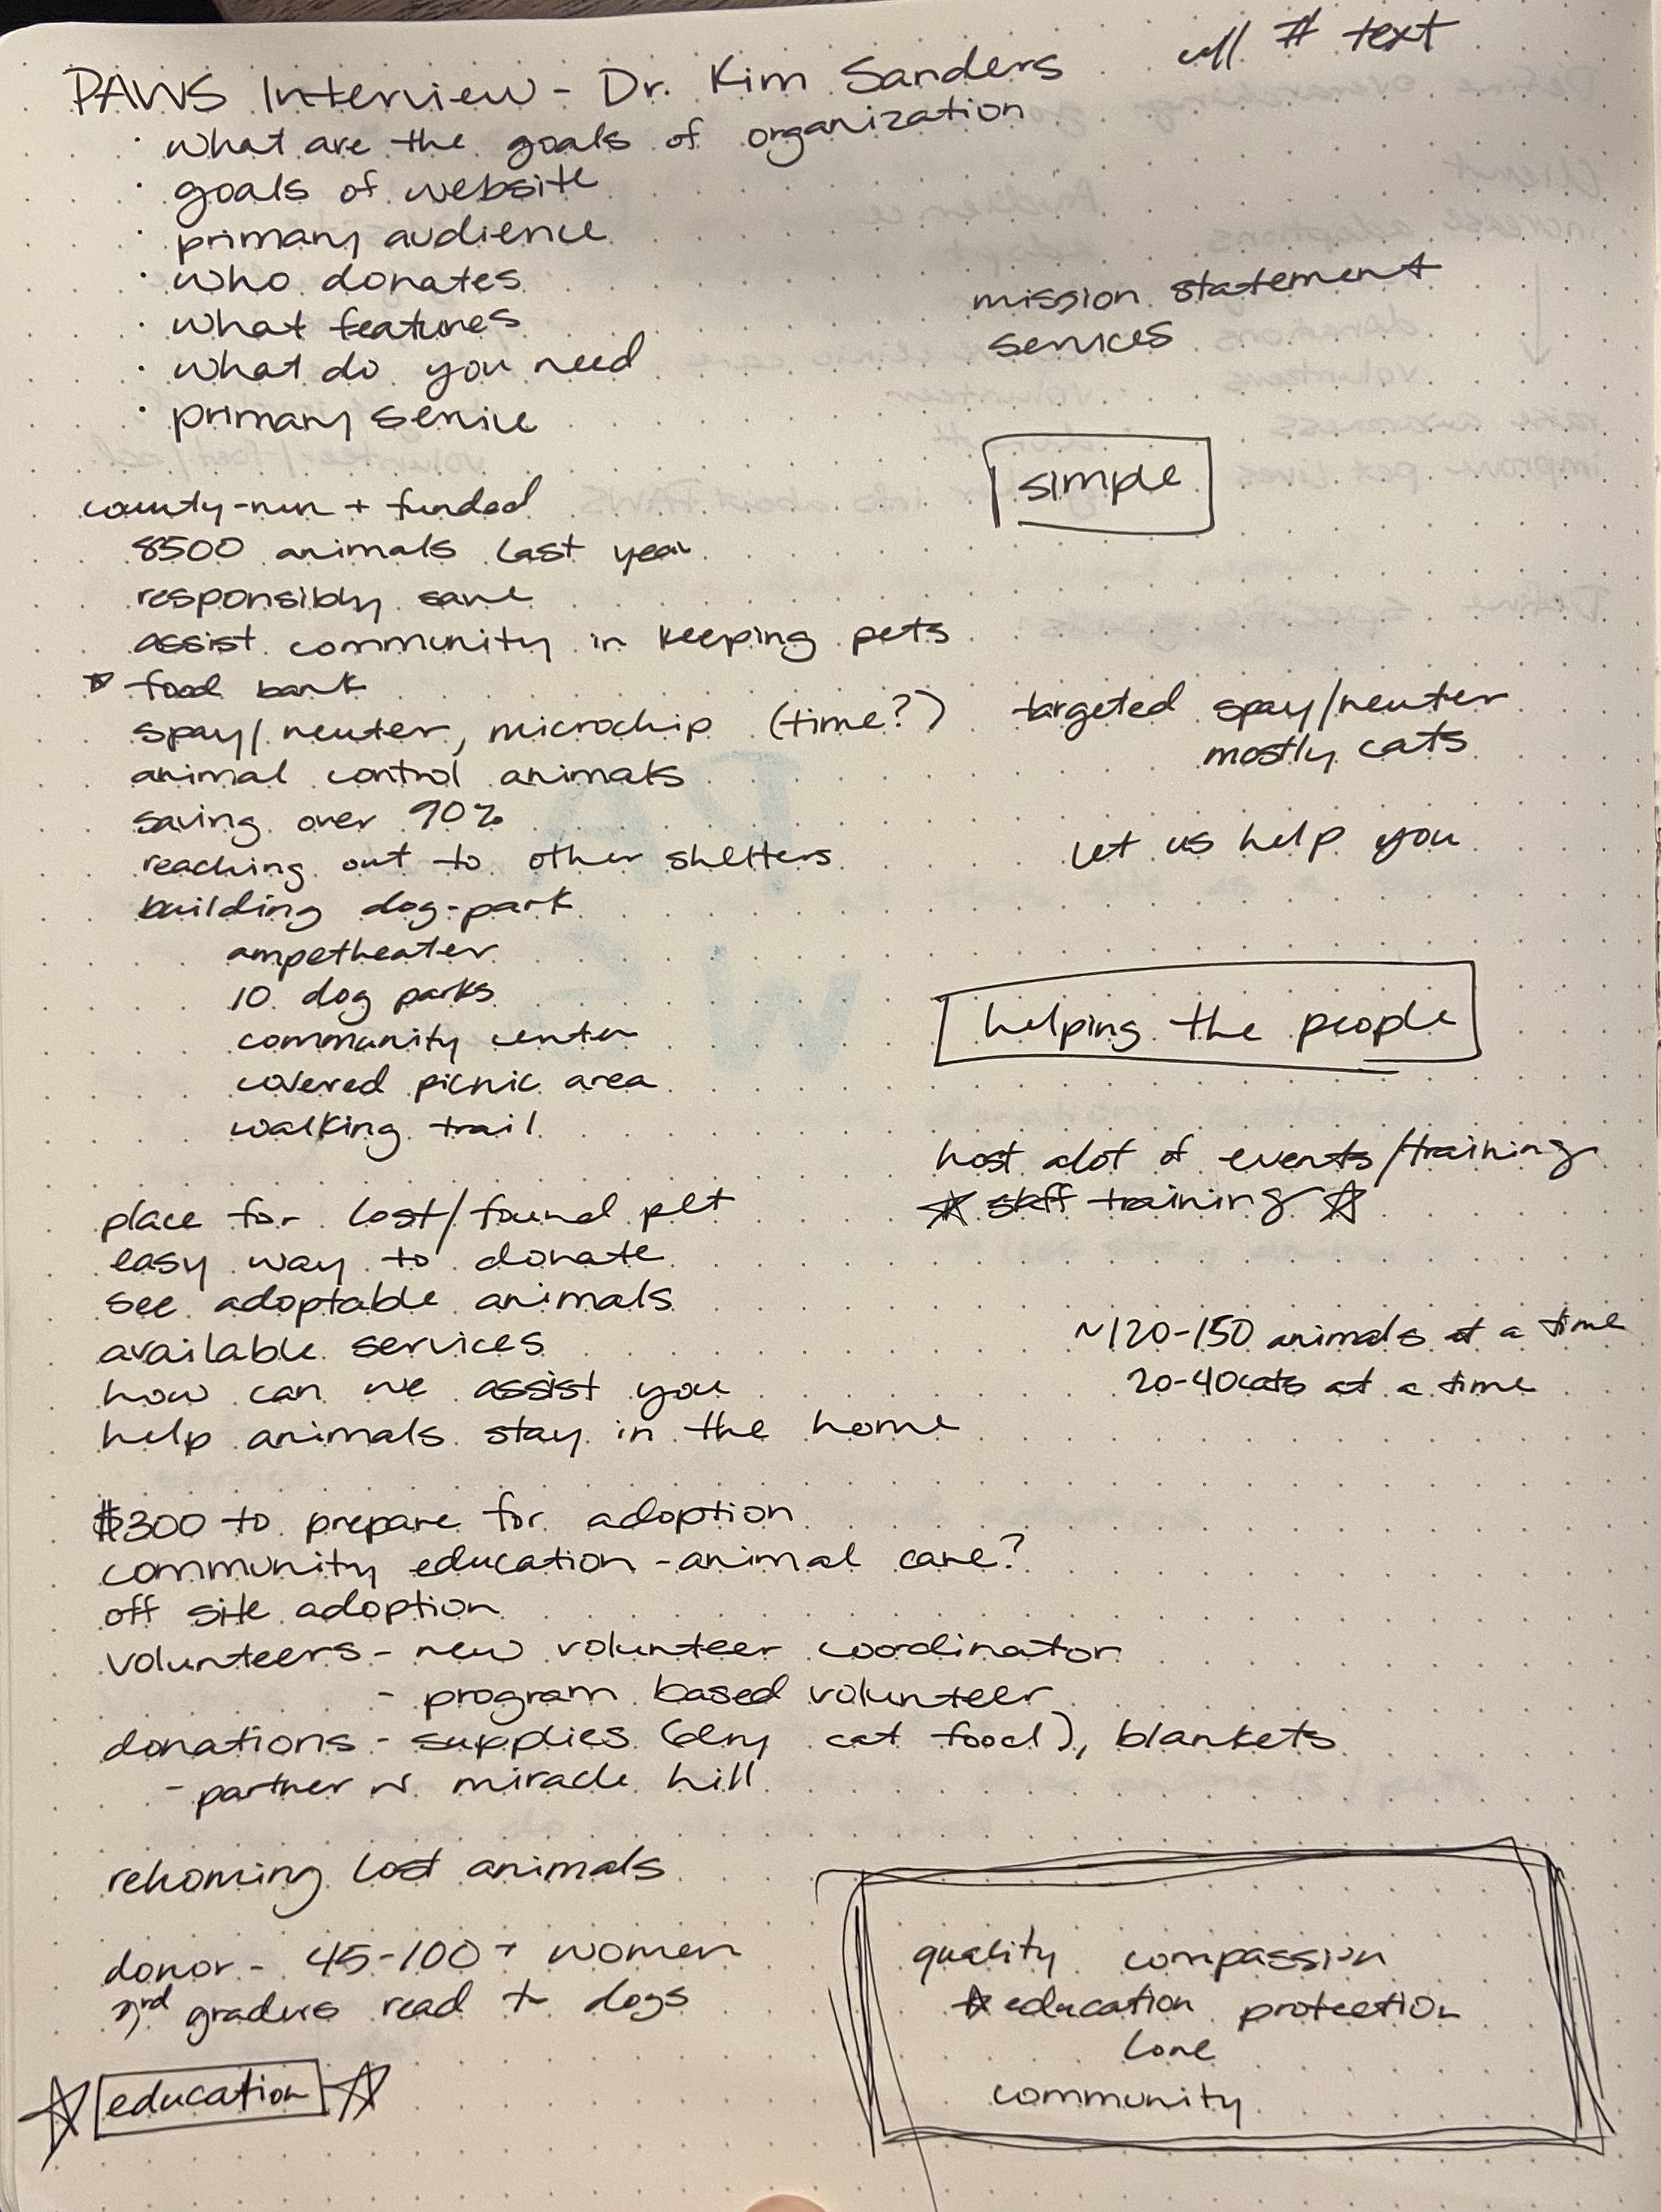 PAWS Interview - Dr. Kim Sanders
call # text
· what are the goals of organization
· goals of website
· primary audience
· who donates
· what features
· what do you need
· primary service
mission statement
services
simple
county-run + funded
8500 animals last year
responsibly save
assist community in keeping pets
☆ food bank
spay/neuter, microchip (time?)
animal control animals
saving over 90%
reaching out to other shelters
building dog-park
ampetheater
10 dog parks
community center
covered picnic area
walking trail
targeted spay/neuter
mostly cats
let us help you
helping the people
host alot of events/training
☆ staff training ☆
place for lost/found pet
easy way to donate
see adoptable animals
available services
how can we assist you
help animals stay in the home
~120-150 animals at a time
20-40 cats at a time
$300 to prepare for adoption
community education - animal care?
off site adoption
volunteers - new volunteer coordinator
- program based volunteer
donations - supplies (dry cat food), blankets
- partner w miracle hill
rehoming lost animals
donor - 45-100+ women
3rd graders read to dogs
☆ education ☆
quality compassion
☆ education protection
love
community